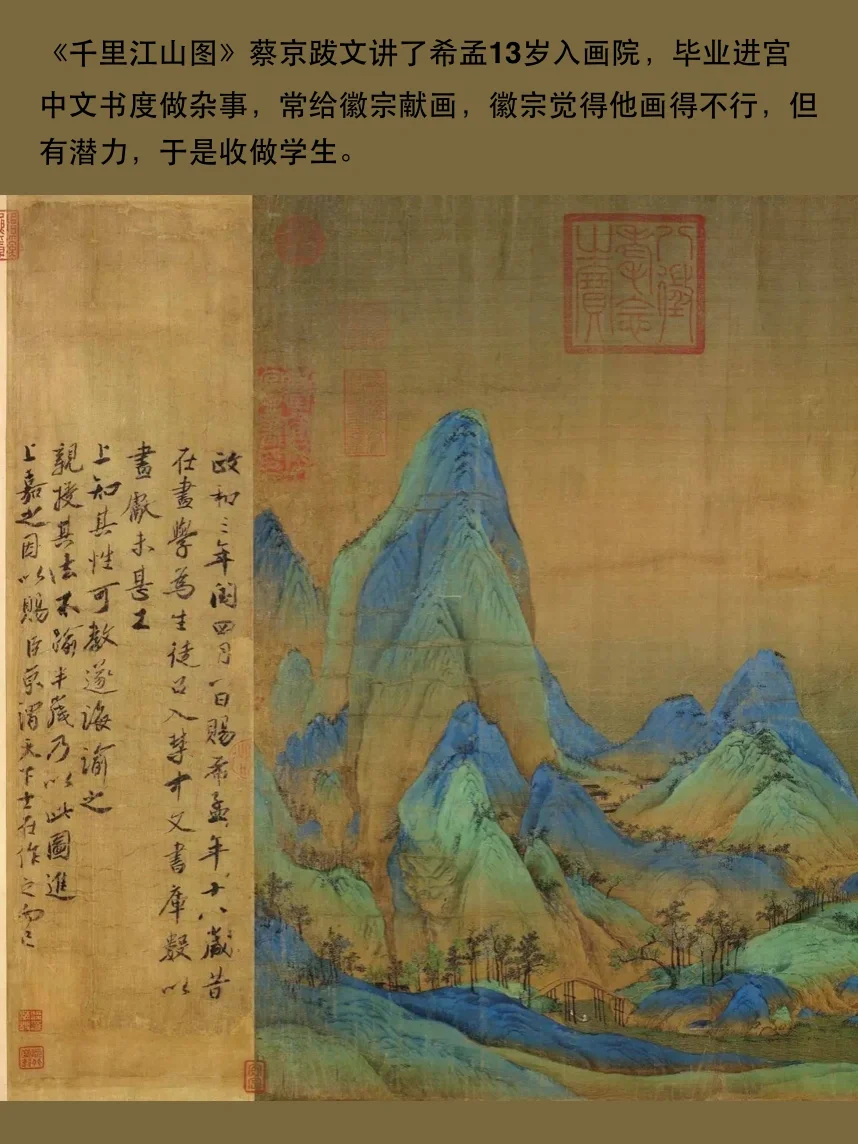 《千里江山图》蔡京跋文讲了希孟13岁入画院，毕业进宫
中文书度做杂事，常给徽宗献画，徽宗觉得他画得不行，但
有潜力，于是收做学生。
八徵
耄念
之寶
政和三年閏四月八日賜希孟年十八歲昔
在畫學為生徒召入禁中文書庫數以
畫獻未甚工
上知其性可教遂誨諭之
親授其法不踰半歲乃以此圖進
上嘉之因以賜臣京謂天下士在作之而已